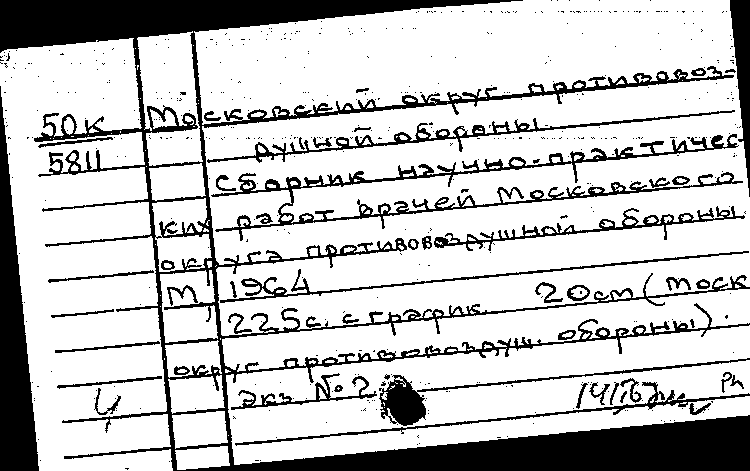 50к
5811
Московский округ противовоз-
душной обороны.
Сборник научно-практичес-
ких работ врачей Московского
округа противовоздушной обороны
М, 1964.
225с. с график. 20см (Моск
округ противовоздуш. обороны).
Экз. № 2
Ч